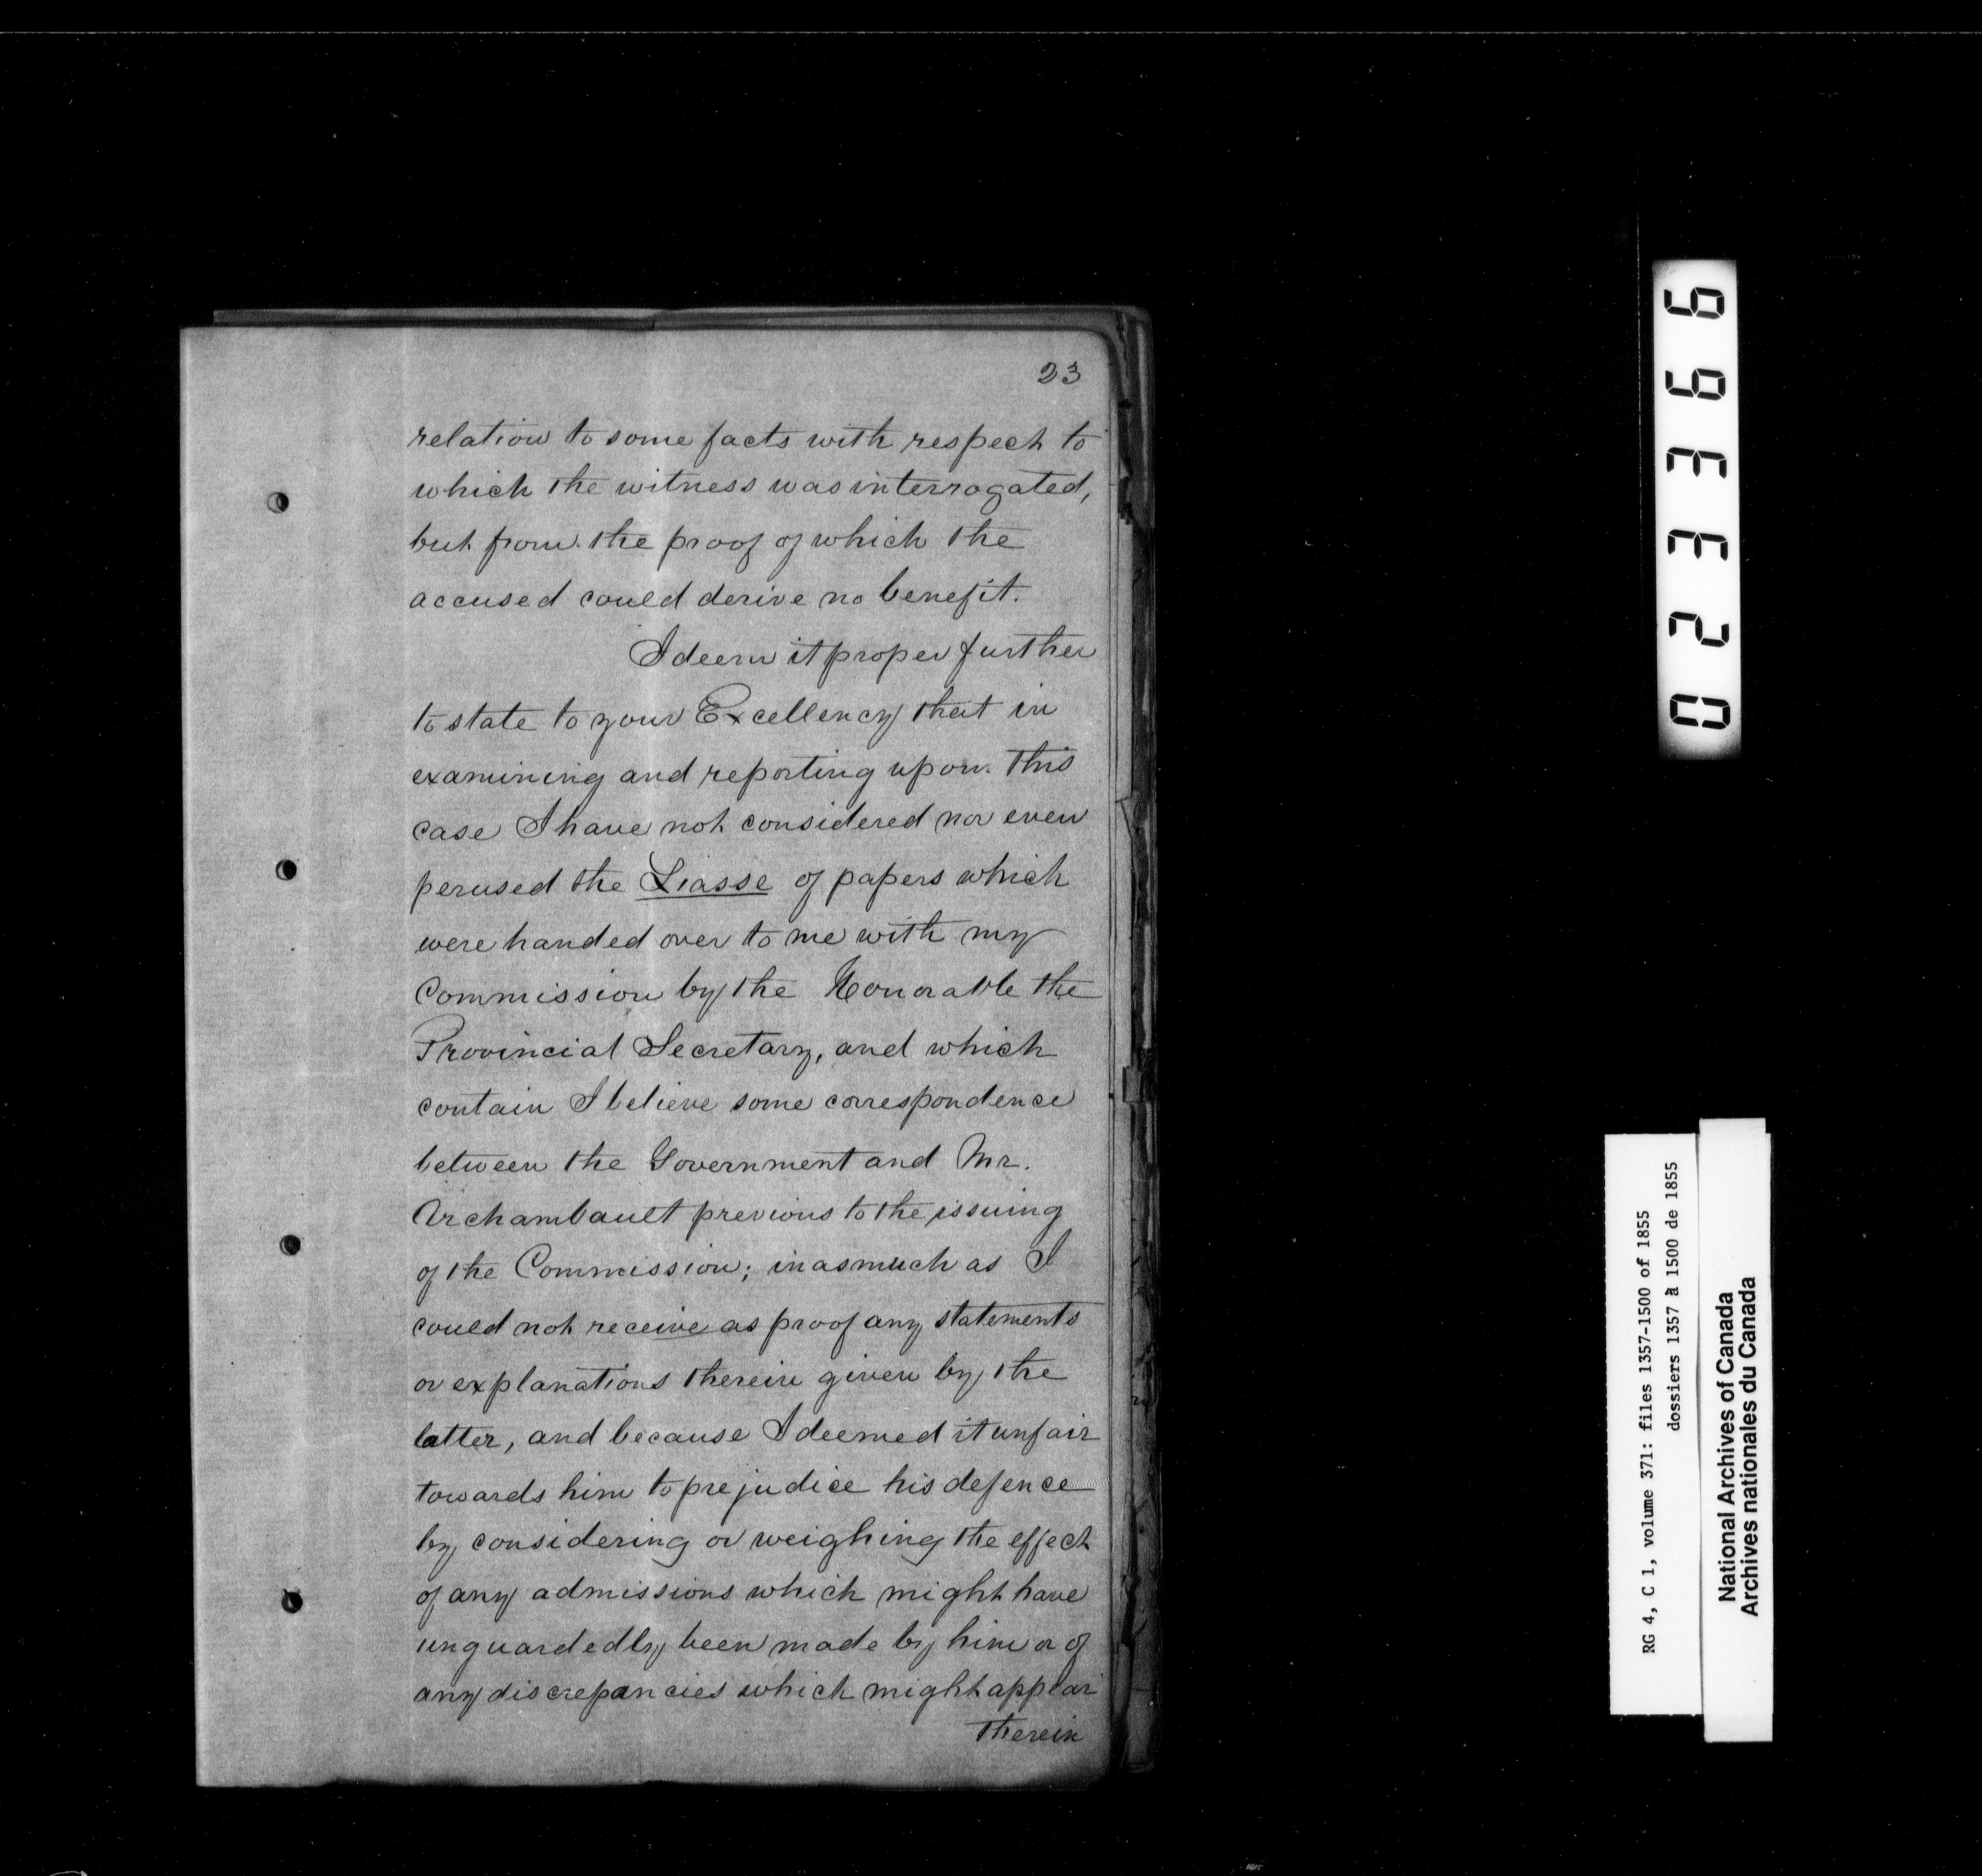 23
relation to some facts with respect to
which the witness was interrogated,
but from the proof of which the
accused could derive no benefit.
I deem it proper further
to state to your Excellency that in
examining and reporting upon this
case I have not considered nor even
perused the Liasse of papers which
were handed over to me with my
Commission by the Honorable the
Provincial Secretary, and which
contain I believe some correspondence
between the Government and Mr.
Archambault previous to the issuing
of the Commission; inasmuch as I
could not receive as proof any statements
or explanations therein given by the
latter, and because I deemed it unfair
towards him to prejudice his defence
by considering or weighing the effect
of any admissions which might have
unguardedly been made by him or of
any discrepancies which might appear
therein
023366
RG 4, C 1, volume 371: files 1357-1500 of 1855
dossiers 1357 à 1500 de 1855
National Archives of Canada
Archives nationales du Canada